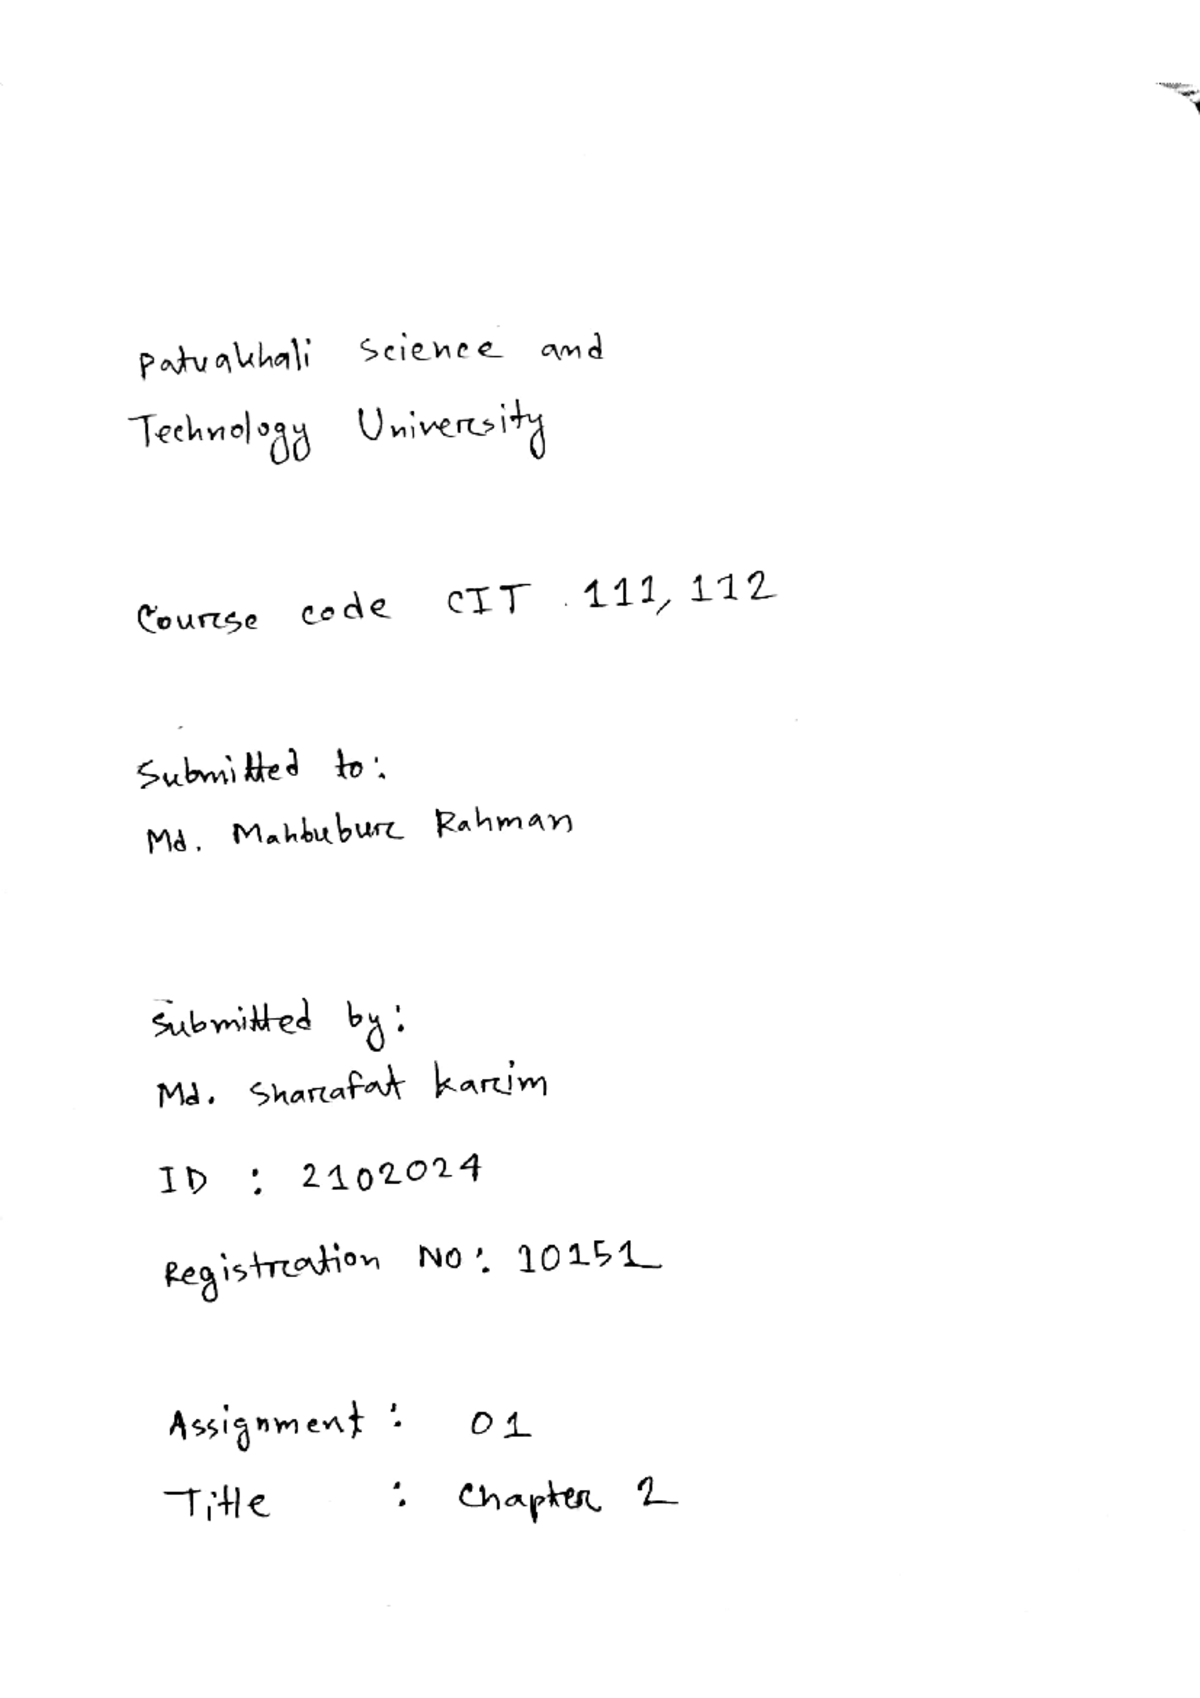 Patuakhali Science and
Technology University
Course code CIT 111, 112
Submitted to:
Md. Mahbubur Rahman
Submitted by:
Md. Sharafat Karim
ID : 2102024
Registration No: 10151
Assignment: 01
Title : Chapter 2